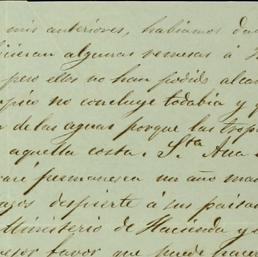 mis anteriores, habiamos da
icieran algunas remesas á
pero ellos no han podido alca
opico no concluye todabia y q
n de las aguas porque las trop
aquella costa. Sta Ana
caré permanesca un año mas
azos despierte á sus paisa
Ministerio de Hacienda y
favor que puede hacer